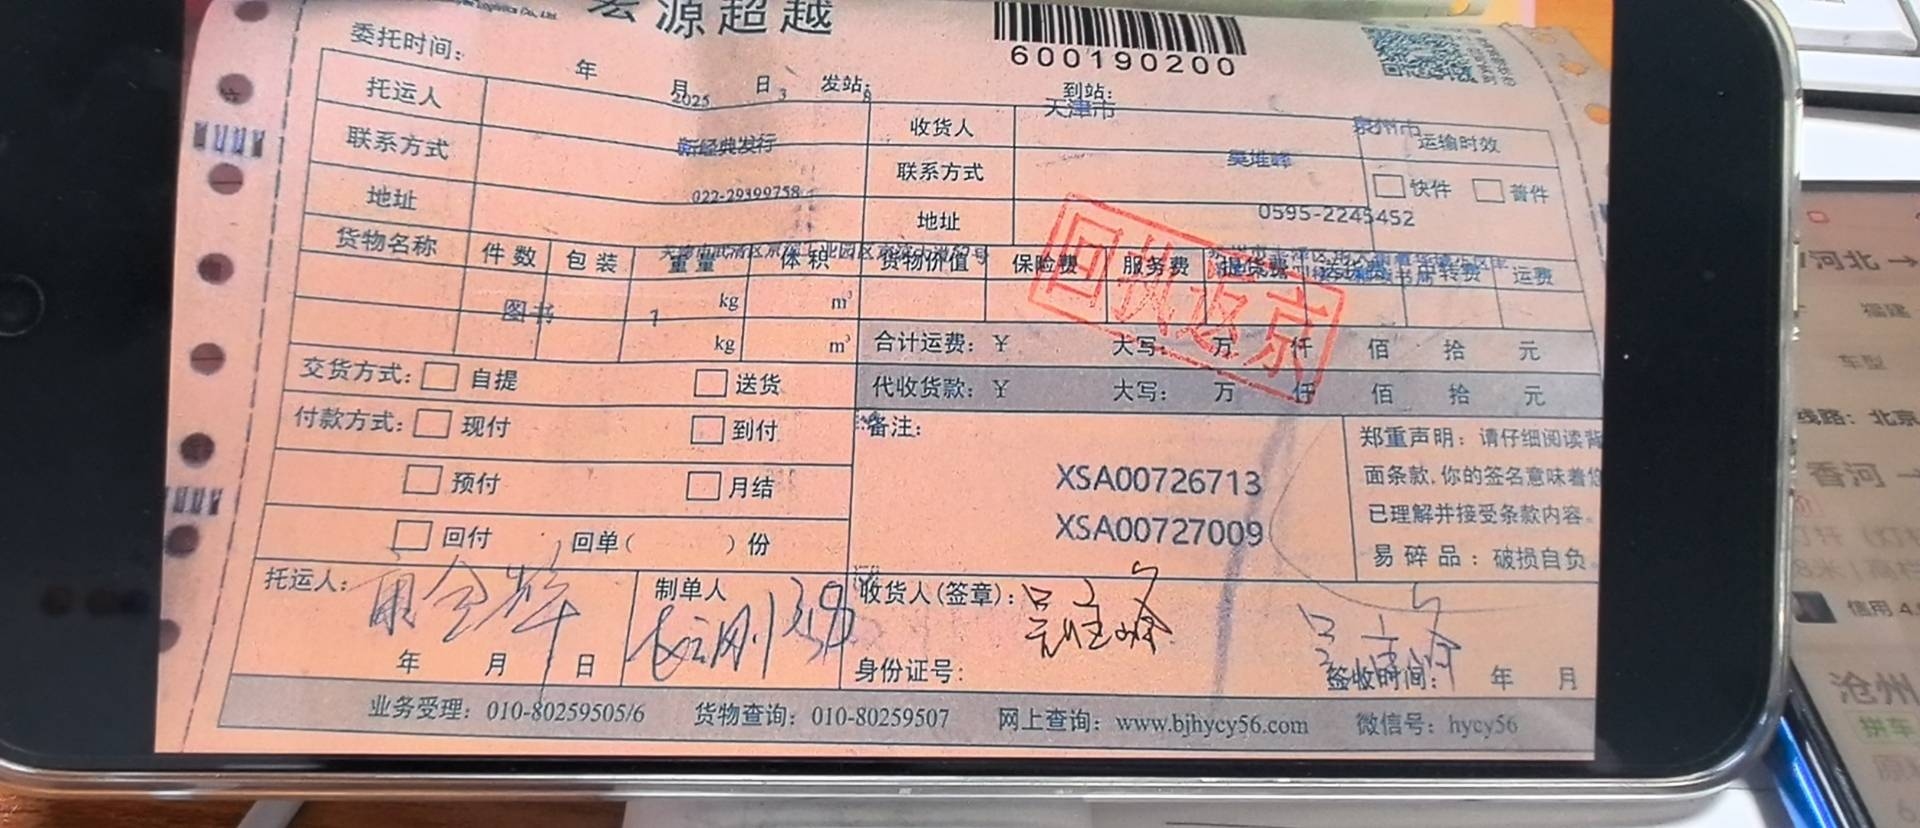 Logistics Co., Ltd.
宏源超越
600190200
委托时间： 年 月 日 发站： 到站：
2025 3 8 天津市 泉州市
托运人 新经典发行 收货人 吴雄峰 运输时效
联系方式 022-29399758 联系方式 0595-2245452 快件 普件
地址 地址
货物名称 件数 包装 重量 体积 货物价值 保险费 服务费 提货费 中转费 运费
图书 1 kg m³
kg m³
回执返京
合计运费：￥ 大写： 万 仟 佰 拾 元
代收货款：￥ 大写： 万 仟 佰 拾 元
交货方式： 自提 送货
付款方式： 现付 到付
预付 月结
回付 回单（ ）份
备注：
XSA00726713
XSA00727009
郑重声明：请仔细阅读背
面条款,你的签名意味着您
已理解并接受条款内容。
易碎品：破损自负。
托运人：
年 月 日
制单人
收货人(签章)：
身份证号：
签收时间： 年 月
业务受理：010-80259505/6 货物查询：010-80259507 网上查询：www.bjhycy56.com 微信号：hycy56
河北 →
福建
车型
线路：北京
香河
信用 4.
沧州
拼车